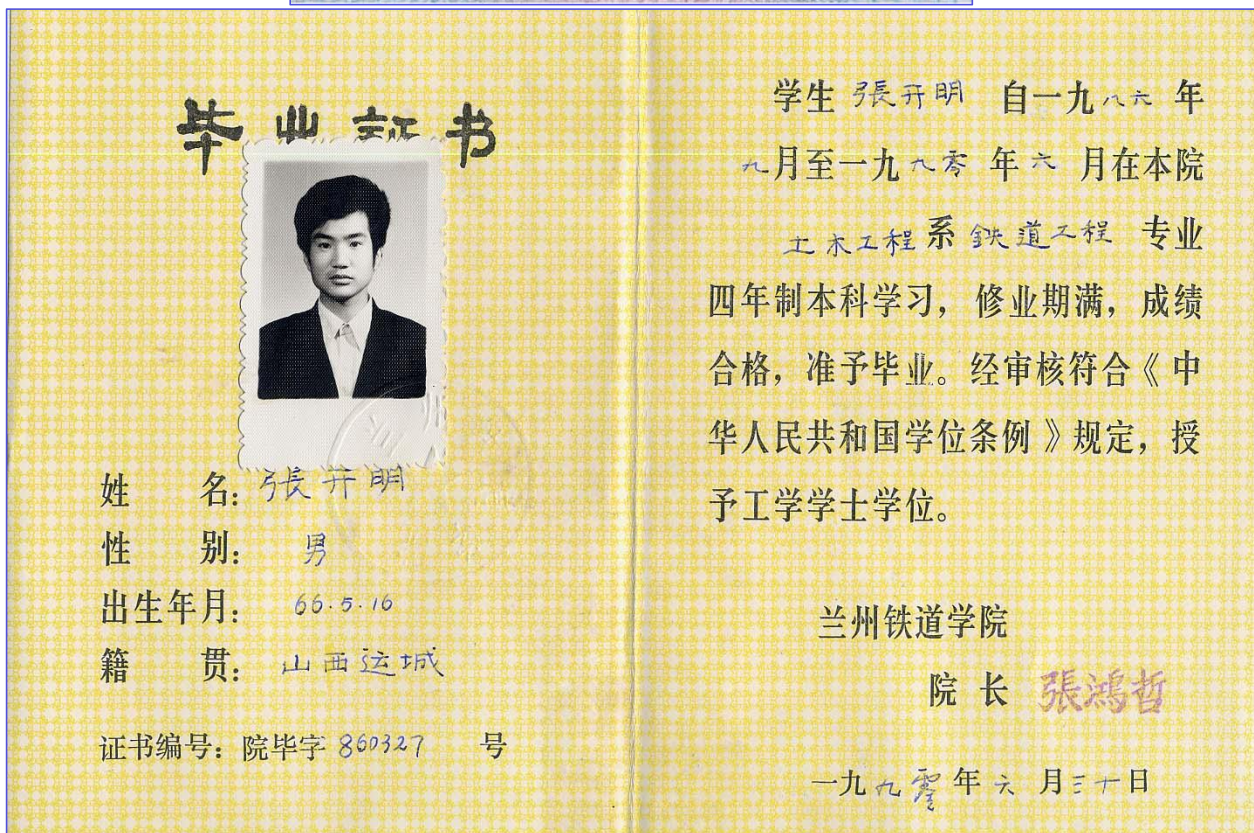 毕业证书
姓 名：張开明
性 别：男
出生年月：66.5.16
籍 贯：山西运城
证书编号：院毕字860327 号
学生 張开明 自一九八六 年
九月至一九九零 年六 月在本院
土木工程系 鉄道工程 专业
四年制本科学习，修业期满，成绩
合格，准予毕业。经审核符合《中
华人民共和国学位条例》规定，授
予工学学士学位。
兰州铁道学院
院 长 張鴻哲
一九九零年六 月三十日